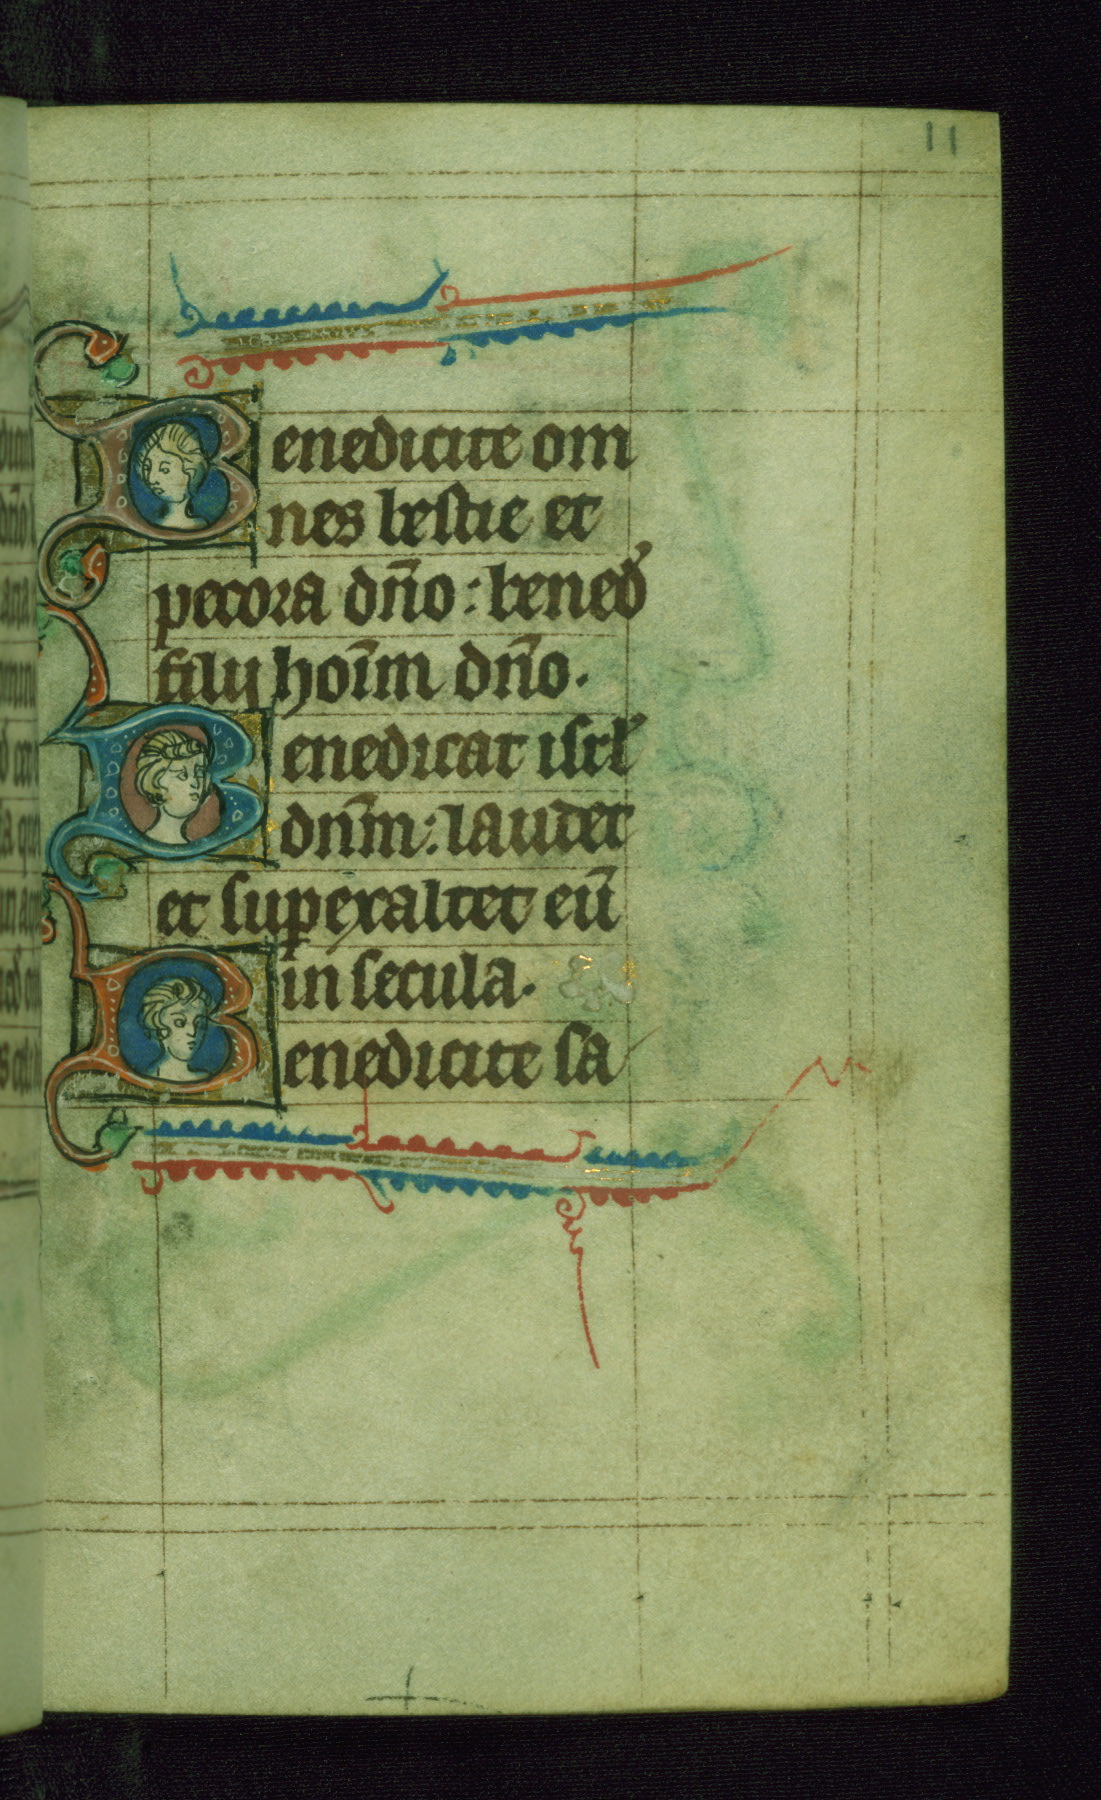 11
Benedicite om
nes bestie et
pecora dn̄o : bened̾
filij hoīm dn̄o .
Benedicat isrl̾
dnm̄ : laudet
et suꝑexaltet eū
in secula .
Benedicite sa